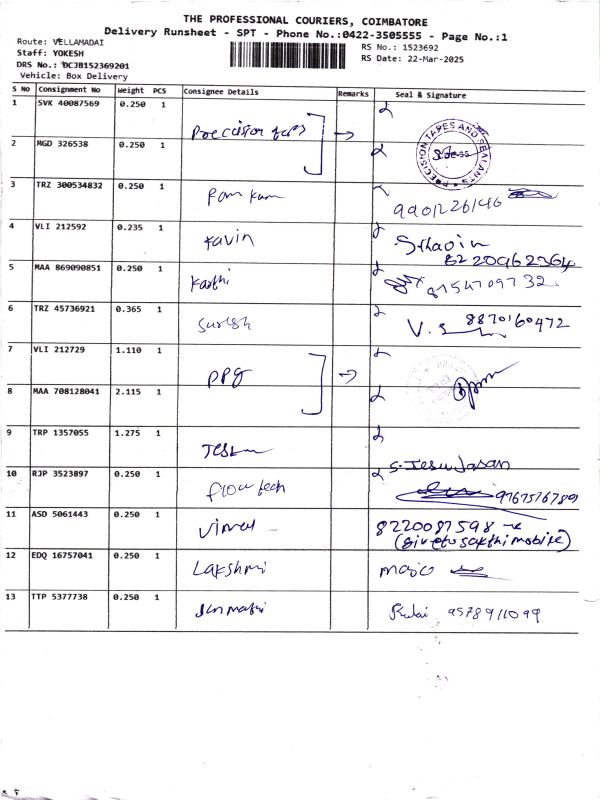 THE PROFESSIONAL COURIERS, COIMBATORE
Delivery Runsheet - SPT - Phone No.:0422-3505555 - Page No.:1
Route: VELLAMADAI
RS No.: 1523692
Staff: YOKESH
RS Date: 22-Mar-2025
DRS No.: DCJB152369201
Vehicle: Box Delivery
S No Consignment No Weight PCS Consignee Details Remarks Seal & Signature
1 SVK 40087569 0.250 1
PRECISION TAPES AND SEALANTS
2 MGD 326538 0.250 1
3 TRZ 300534832 0.250 1
9901226146
4 VLI 212592 0.235 1 Kavin
8220962364
5 MAA 869090851 0.250 1 Karthi
8754709732
6 TRZ 45736921 0.365 1 Suresh V.S 8870160472
7 VLI 212729 1.110 1 PPG
8 MAA 708128041 2.115 1
9 TRP 1357055 1.275 1
S. Jesu Jasan
10 RJP 3523897 0.250 1 flow tech
11 ASD 5061443 0.250 1 Vimal 8220087598
(give to sakthi mobile)
12 EDQ 16757041 0.250 1 Lakshmi
13 TTP 5377738 0.250 1 9578911099